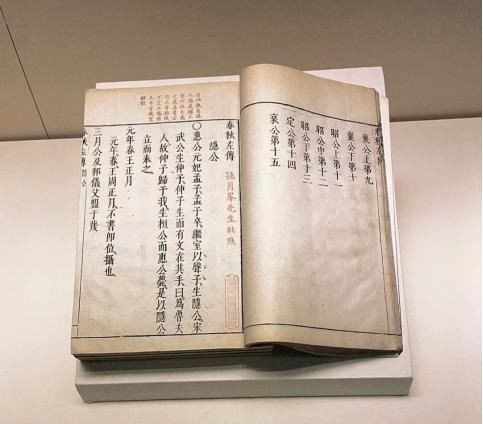 襄公上第九
襄公下第十
昭公上第十一
昭公中第十二
昭公下第十三
定公第十四
哀公第十五
春秋左傳
孫月峯先生批點
隱公
〇惠公元妃孟子孟子卒繼室以聲子生隱公宋
武公生仲子仲子生而有文在其手曰爲魯夫
人故仲子歸于我生桓公而惠公薨是以隱公
立而奉之
元年春王正月
元年春王周正月不書即位攝也
三月公及邾儀父盟于蔑
秋左傳 隱公